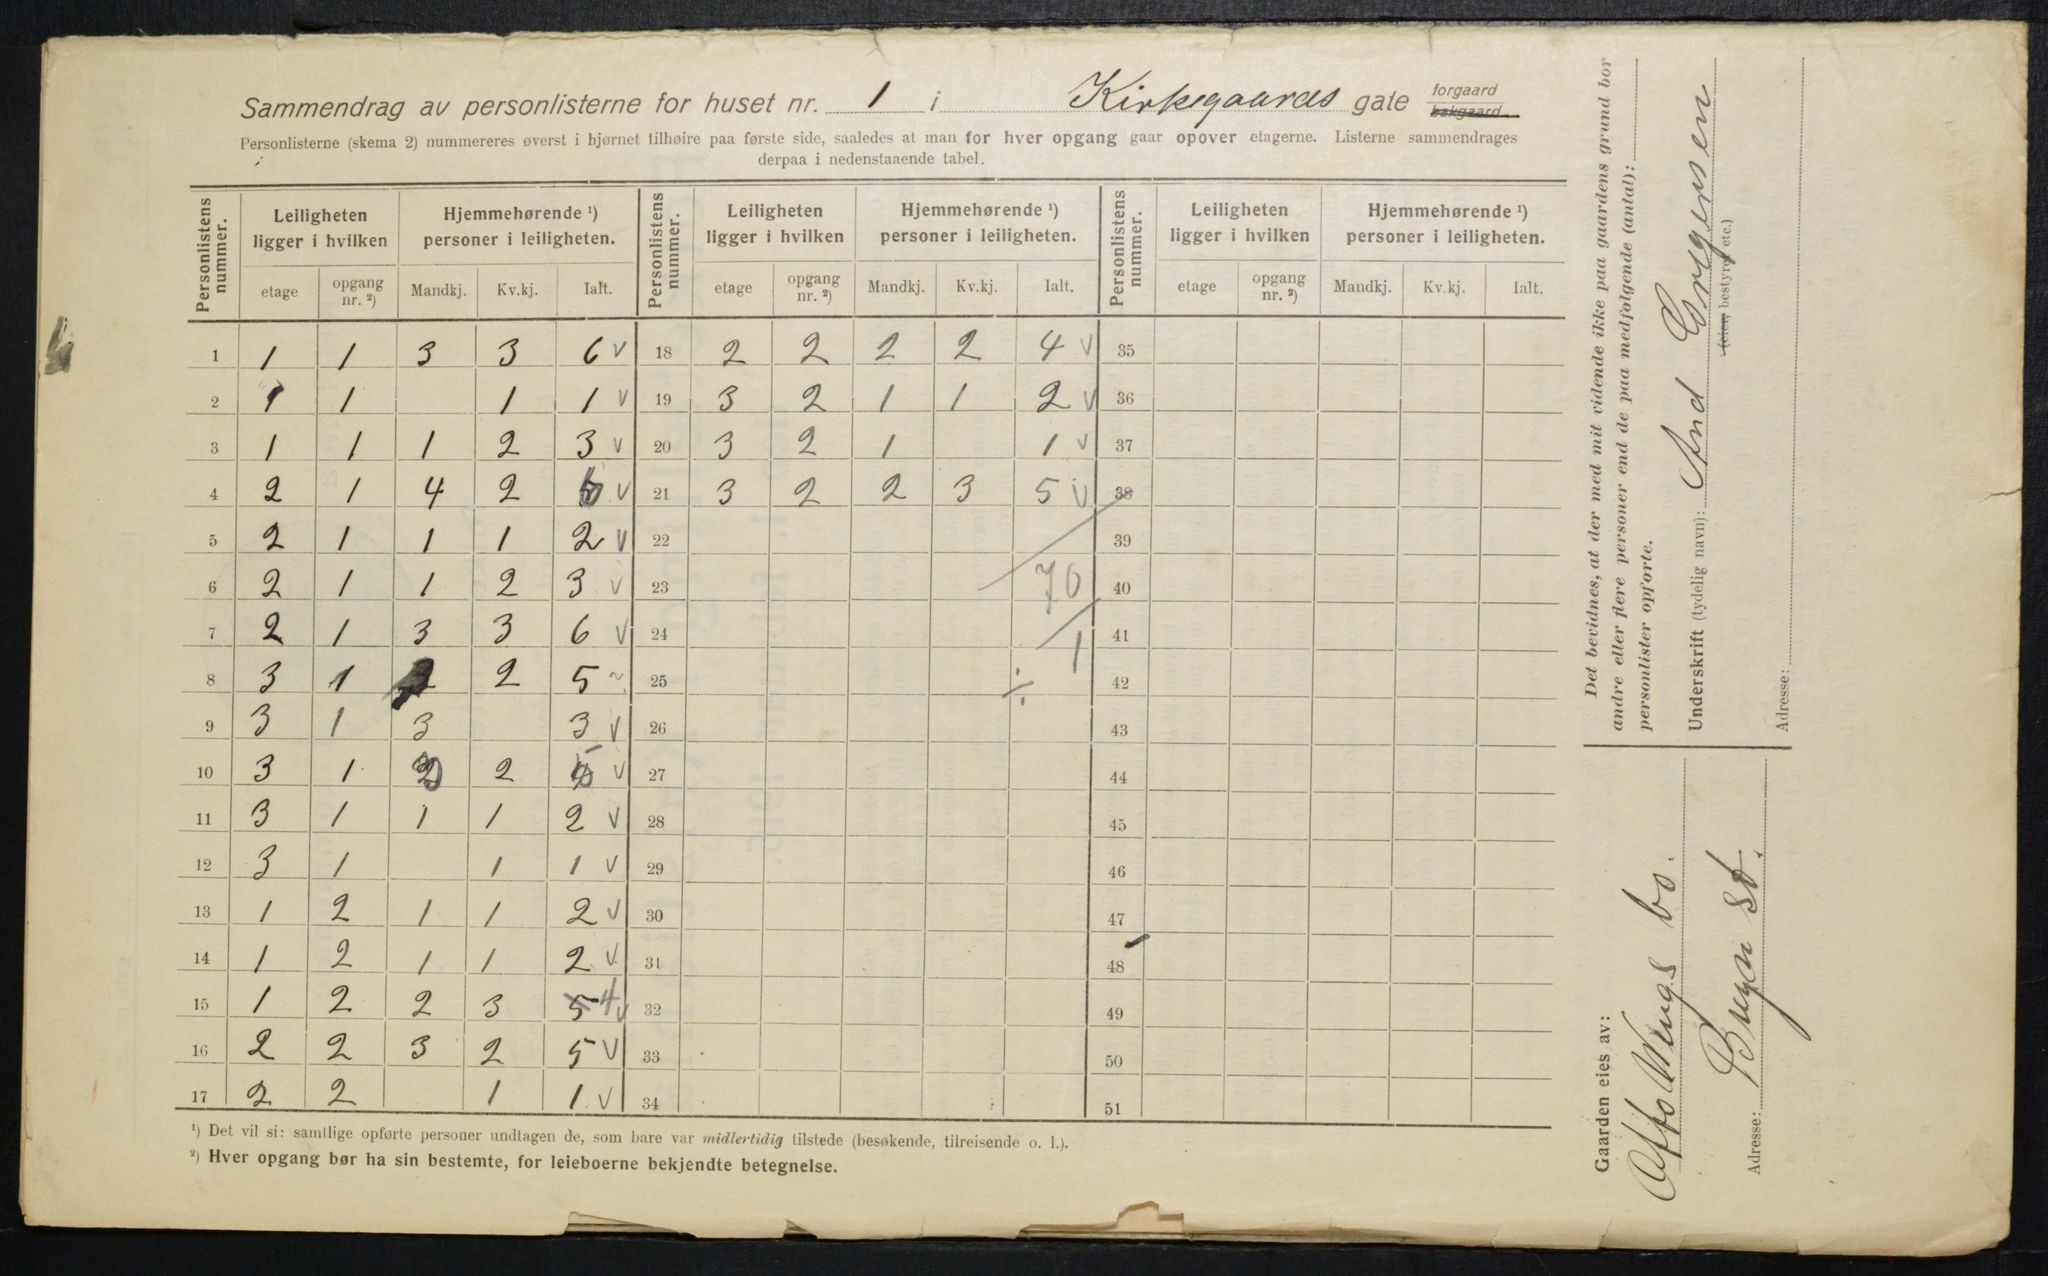 Sammendrag av personlisterne for huset nr. 1 i Kirkegaards gate forgaard bakgaard
Personlisterne (skema 2) nummereres øverst i hjørnet tilhøire paa første side, saaledes at man for hver opgang gaar opover etagerne. Listerne sammendrages
derpaa i nedenstaaende tabel.
Personlistens nummer. Leiligheten ligger i hvilken Hjemmehørende ¹) personer i leiligheten. Personlistens nummer. Leiligheten ligger i hvilken Hjemmehørende ¹) personer i leiligheten. Personlistens nummer. Leiligheten ligger i hvilken Hjemmehørende ¹) personer i leiligheten.
etage opgang nr. ²) Mandkj. Kv.kj. Ialt. etage opgang nr. ²) Mandkj. Kv.kj. Ialt. etage opgang nr. ²) Mandkj. Kv.kj. Ialt.
1 1 1 3 3 6 v 18 2 2 2 2 4 v 35
2 1 1 1 1 v 19 3 2 1 1 2 v 36
3 1 1 1 2 3 v 20 3 2 1 1 v 37
4 2 1 4 2 v 21 3 2 2 3 5 v 38
5 2 1 1 1 2 v 22 39
6 2 1 1 2 3 v 23 70 40
7 2 1 3 3 6 v 24 1 41
8 3 1 2 5 25 ÷ 42
9 3 1 3 3 v 26 43
10 3 1 2 v 27 44
11 3 1 1 1 2 v 28 45
12 3 1 1 1 v 29 46
13 1 2 1 1 2 v 30 47
14 1 2 1 1 2 v 31 48
15 1 2 2 3 5 4 v 32 49
16 2 2 3 2 5 v 33 50
17 2 2 1 1 v 34 51
¹) Det vil si: samtlige opførte personer undtagen de, som bare var midlertidig tilstede (besøkende, tilreisende o. l.).
²) Hver opgang bør ha sin bestemte, for leieboerne bekjendte betegnelse.
Det bevidnes, at der med mit vidende ikke paa gaardens grund bor
andre eller flere personer end de paa medfølgende (antal):
personlister opførte.
Underskrift (tydelig navn): And Ergensen
(eier, bestyrer etc.)
Adresse:
Gaarden eies av:
Otto Wengs bo.
Adresse: Bryn st.